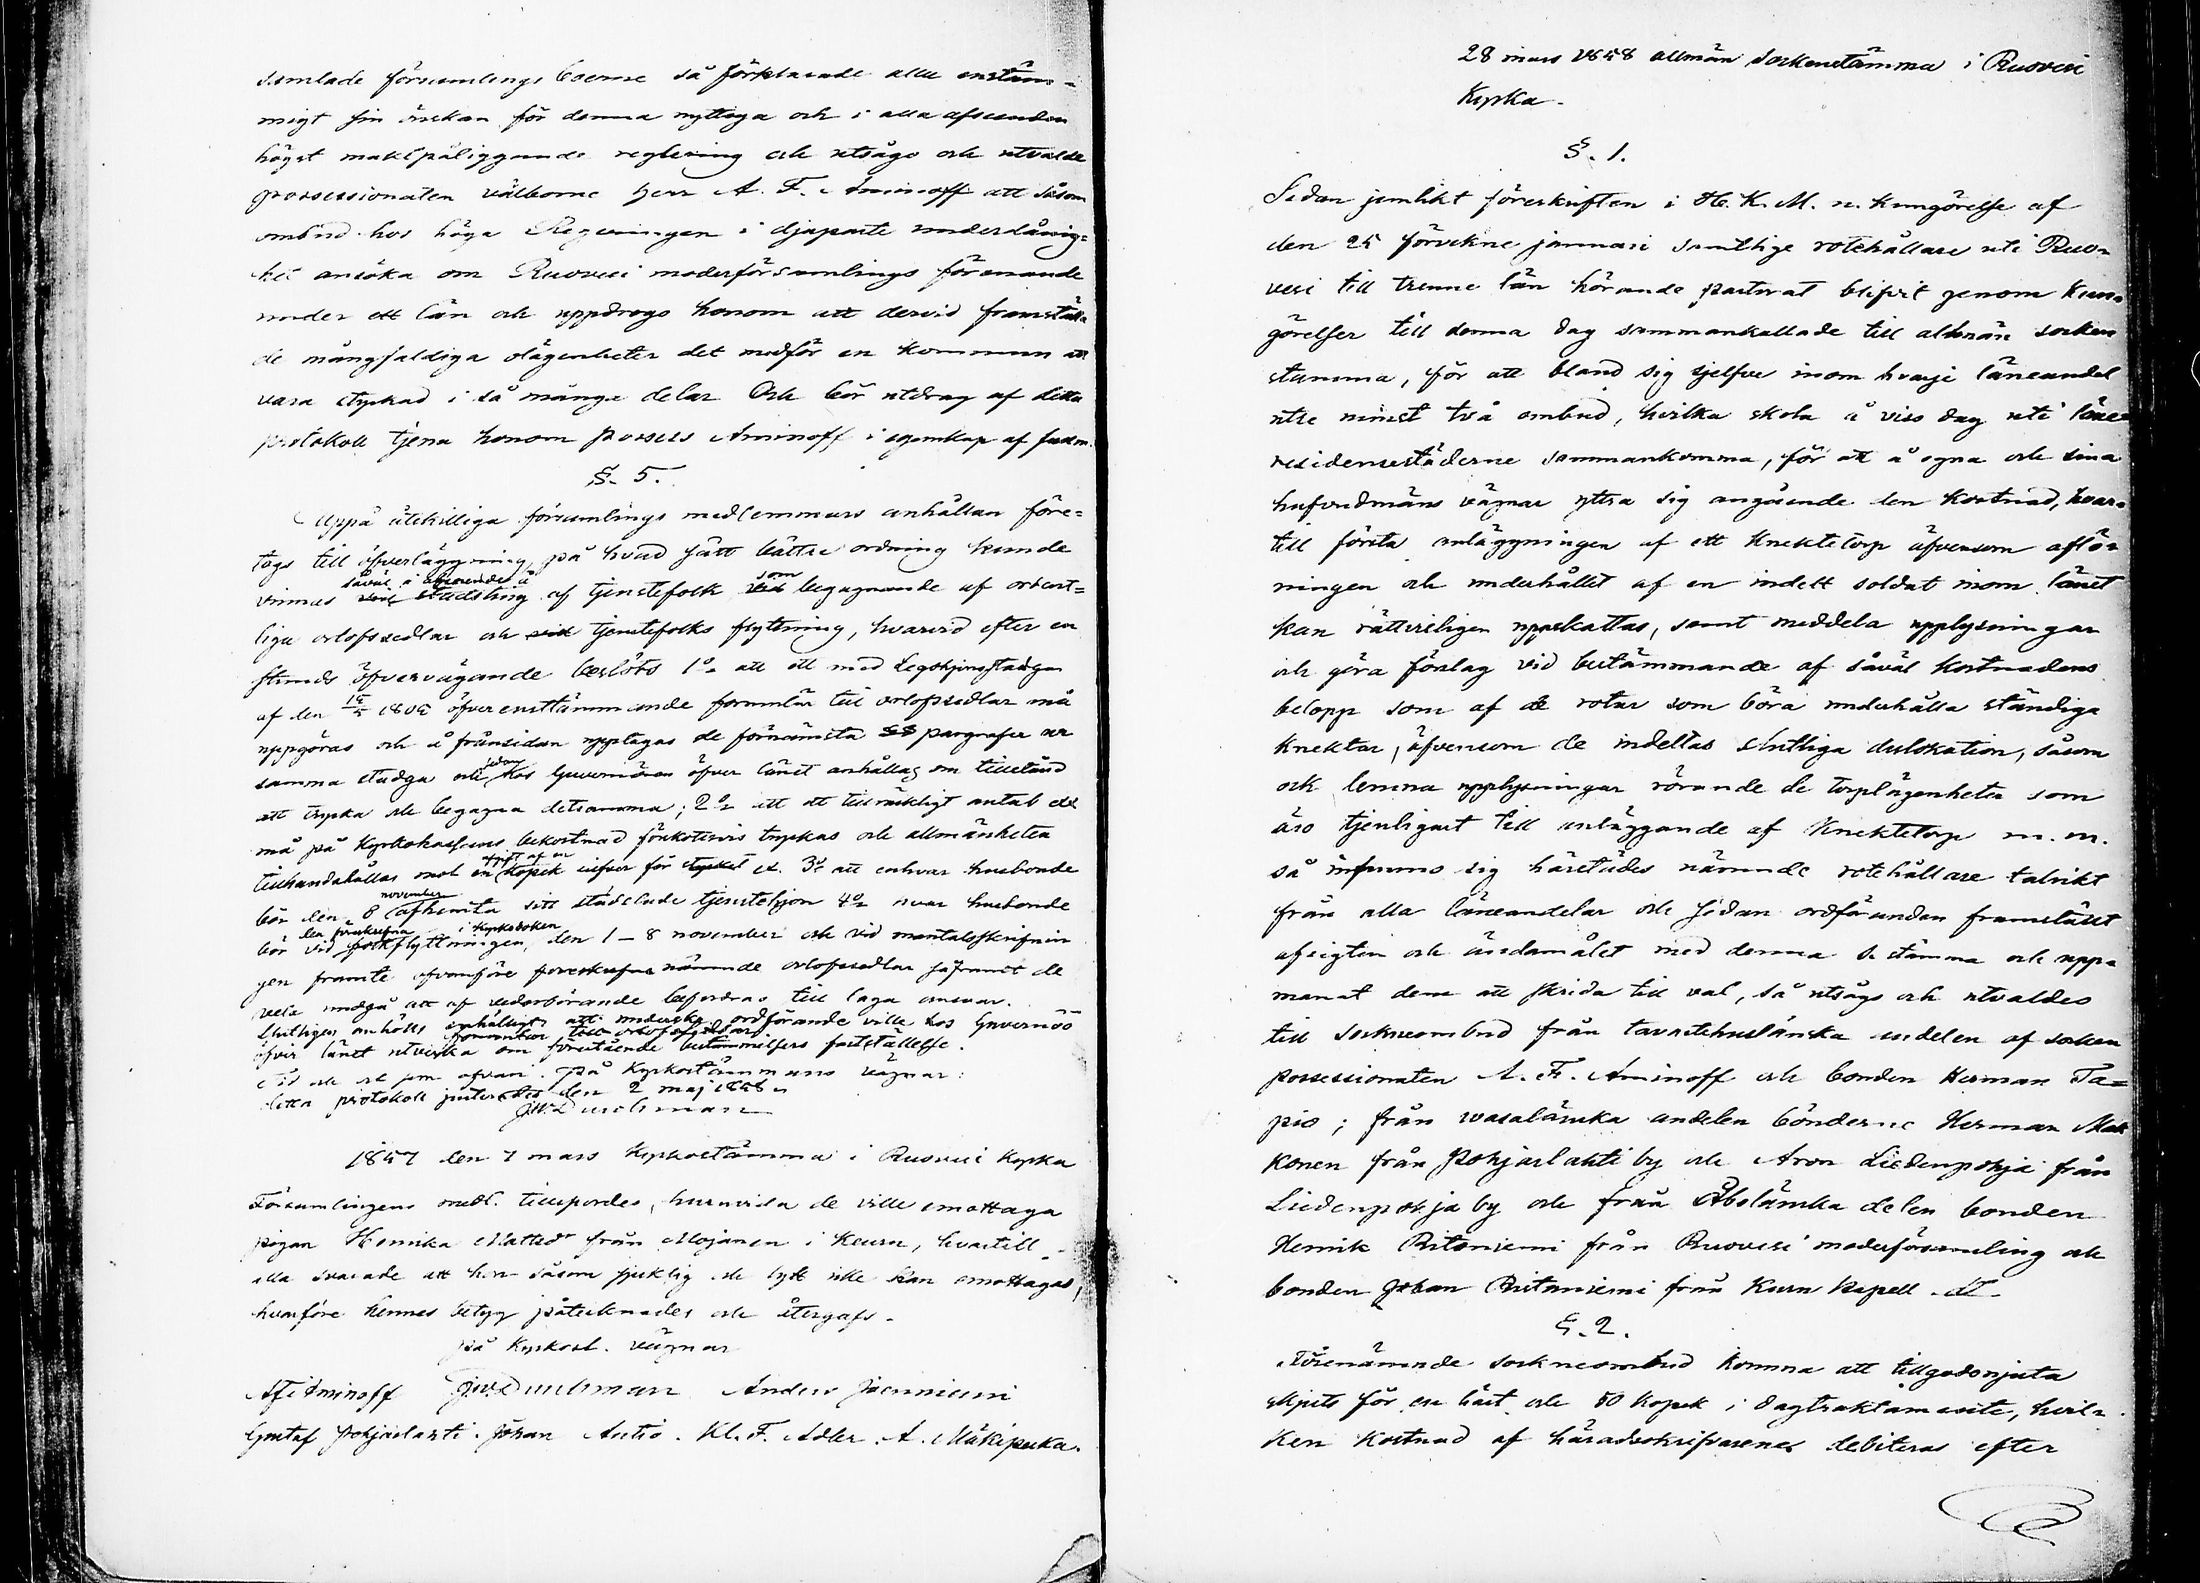 samlade församlings boerne så förklarade alla enstäm-
migt sin önskan för denna nyttiga och i alla afseenden
högst maktpåliggande reglering och utsågo och utvalde
possessionaten välborne herr A. F. Aminoff att såsom
ombud hos höga Regeringen i djupaste underdånig-
het ansöka om Ruovesi moderförsamlings förenande
under ett län och uppdrogo honom att dervid framställa
de mångfaldiga olägenheter det medför en kommun att
vara styckad i så många delar Och bör utdrag af detta
protokoll tjena honom possess Aminoff i egenskap af fullm.
§. 5.
Uppå åtskilliga församlings medlemmars anhållan före-
togs till öfverläggning på hvad sätt bättre ordning kunde
vinnas såväl i afseende å städsling af tjenstefolk som begagnande af ordent-
liga orlofssedlar och tjenstefolks flyttning, hvarvid efter en
stunds öfvervägande beslöts 1o att ett med Legohjonsstadgan
af den 1805 öfverensstämmande formulär till orlofssedlar må
uppgöras och å frånsidan upptagas de förnämsta paragrafer ur
samma stadga och sedan hos Guvernören öfver länet anhållas om tillstånd
att trycka och begagna detsamma; 2o att ett tillräckligt antal
må på Kyrkokassans bekostnad förskottsvis tryckas och allmänheten
tillhandahållas mot en afgift af en kopek silfver för stycket 3o att enhvar husbonde
bör den 8 november afhemta sitt städslade tjenstehjon 4o hvar husbonde
bör vid folkflyttningen i kyrkoboken den 1 - 8 november och vid mantalsskrifnin
gen framte ofvanföre nämnde orlofssedlar de
undgå att af vederbörande befordras till laga ansvar.
Slutligen anhölls ordförande ville hos Guvernörs
öfver länet utverka om förestående bestämmelsers fastställelse.
År och dag som ofvan. på Kyrkostämmans vägnar:
detta protokoll justerades den 2 maj 1858
1857 den 7 mars Kyrkostämma i Ruovesi Kyrka
Församlingens medl. tillspordes, huruvida de ville emottaga
pigan Henrika Mattsdr från Mojanen i Keuru, hvartill
alla svarade att hon såsom sjuklig och lytt icke kan emottagas,
hvarföre hennes betyg påtecknades och återgafs.
på Kyrkost. vägnar
AF Aminoff Anders Jäminiemi
Gustaf Pohjaslahti. Johan Autio. Kl. F. Adler. A. Mäkipuka.
28 mars 1858 allmän Sockenstämma i Ruovesi
Kyrka.
§. 1.
Sedan jemlikt föreskriften i H. K. M. n. Kungörelse af
den 25 förvekne januari samtlige rotehållare uti Ruo-
vesi till trenne län hörande pastorat blifvit genom Kun-
görelser till denna dag sammankallade till allmän socken
stamma, för att bland sig sjelfve inom hvarje länsandel
utse minst två ombud, hvilka skola å viss dag uti läne-
residensestäderne sammankomma, för att å egna och sina
hufvudmäns vägnar yttra sig angående den kostnad, hvar-
till första anläggningen af ett knektetorp äfvensom aflö-
ningen och underhållet af en indelt soldat inom länet
kan rättvisligen uppskattas, samt meddela upplysningar
och göra förslag vid bestämmande af såväl kostnadens
belopp som af de rotar som böra underhålla ständiga
knektar, äfvensom de indeltas slutliga dislokation, såsom
ock lemna upplysningar rörande de torplägenheter som
äro tjenligast till anläggande af Knektetorp m. m.
så infunno sig härstädes nämnde rotehållare talrikt
från alla länsandelar och sedan ordföranden framstält
afsigten och ändamålet med denna S. stämma och upp-
manat dem att skrida till val, så utsågs och utvaldes
till sockneombud från tavastehuslänska andelen af socken
possessionaten A. F. Aminoff och bonden Herman Ta-
pio; från wasalänska andelen bönderne Herman Mak
konen från Pohjaslahti by och Aron Liedenpohja från
Liedenpohja by och från Åbolänska delen bonden
Henrik Ritoniemi från Ruovesi moderförsamling och
bonden Johan Ritaniemi från Kuru Kapell.
§. 2.
Förenämnde sockneombud komma att tillgodonjuta
skjuts för en häst och 50 kopek i dagtraktamente, hvil-
ken kostnad af häradsskrifvarenes debiteras efter